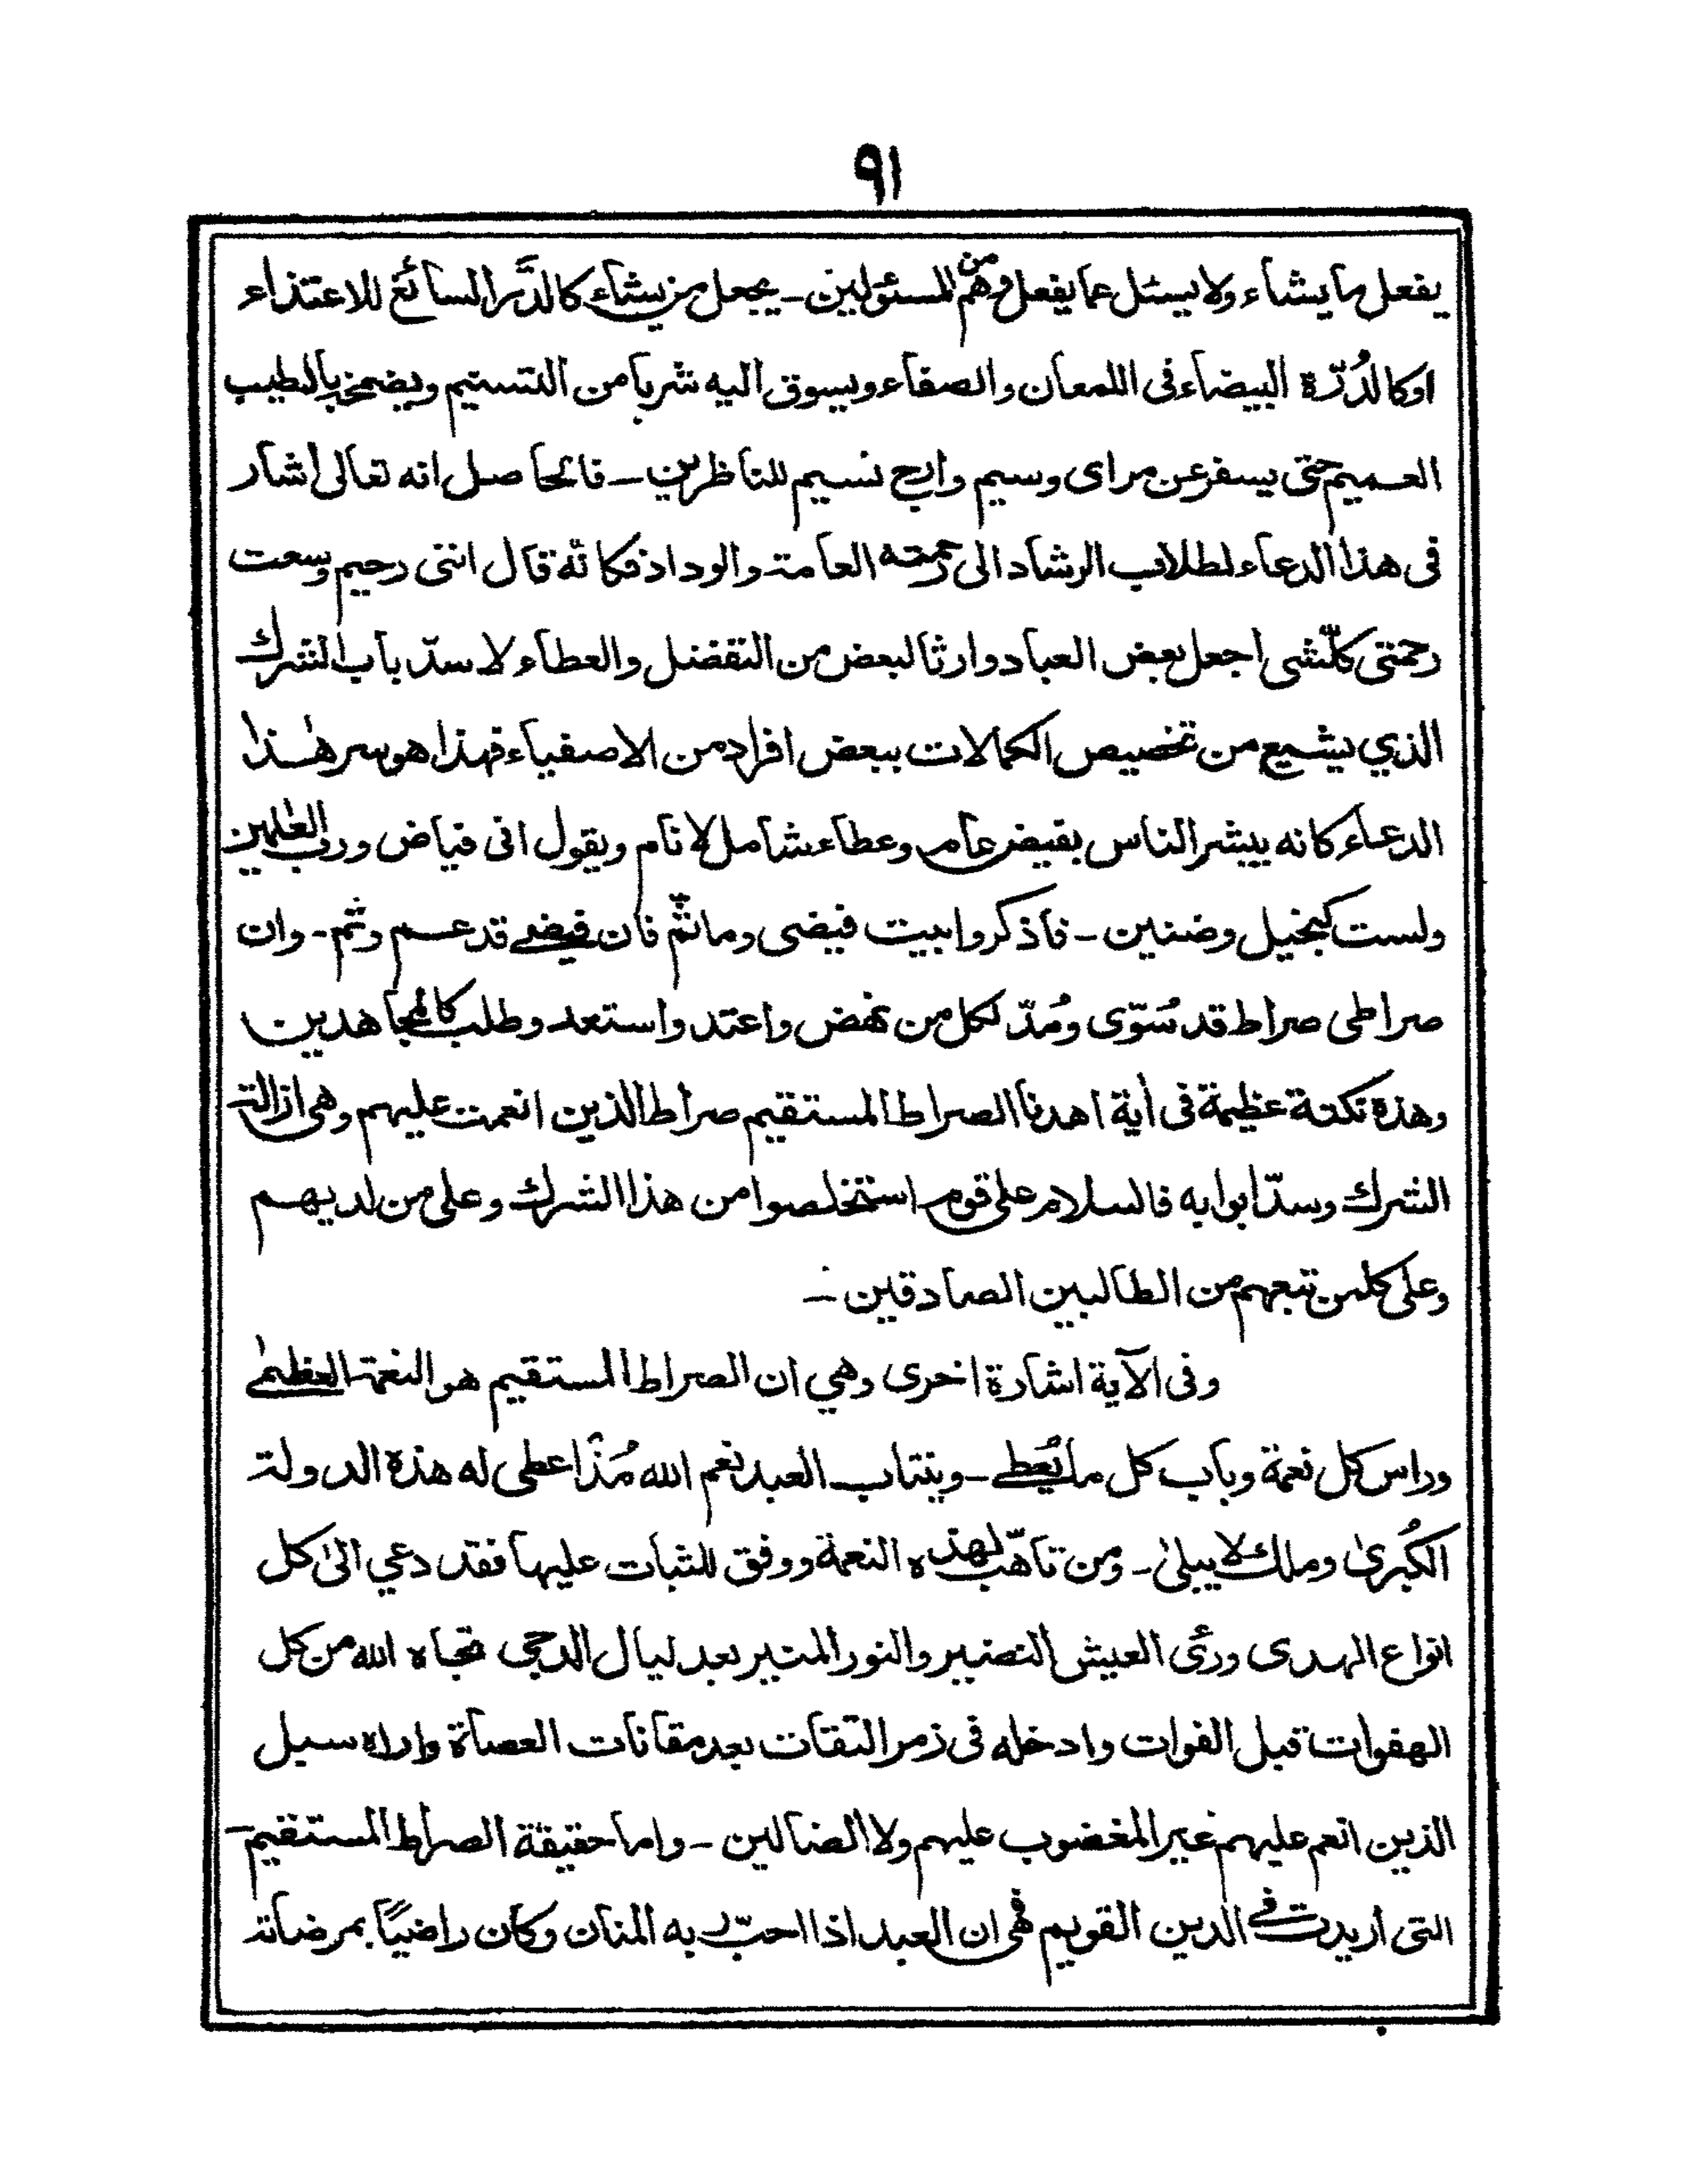 ٩١
يفعل ما يشاء ولا يسئل عما يفعل وهم من المسئولين - يجعل من يشاء كالدَّر السائغ للاغتذاء
اوكالدُرّة البيضاء فى اللمعان والصفاء ويسوق اليه شربا من التسنيم ويضمخ بالطيب
العميم حتى يسفر عن مراى وسيم وارج نسيم للناظرين - فالحاصل انه تعالى اشار
فى هذا الدعاء لطلاب الرشاد الى رحمته العامة والوداد فكانّه قال اننى رحيم وسعت
رحمتى كلّ شى اجعل بعض العباد وارثا لبعض من التفضل والعطاء لاسدّ باب الشرك
الذي يشيع من تخصيص الكمالات ببعض افراد من الاصفياء فهذا هو سر هٰذا
الدعاء كانه يبشر الناس بفيض عام وعطاء شامل لانام ويقول انى فياض ورب العٰلمين
ولست كبخيل وضنين - فاذكروا بيت فيضى وما ثمّ فان فيضى قد عم وتم - وان
صراطى صراط قد سُوّى ومُدّ لكل من نهض واعتد واستعد وطلب كالمجاهدين
وهذه نكتة عظيمة فى أية اهدنا الصراط المستقيم صراط الذين انعمت عليهم وهى ازالة
الشرك وسدّ ابوابه فالسلام على قوم استخلصوا من هذا الشرك وعلى من لديهم
وعلى كل من تبعهم من الطالبين الصادقين -
وفى الآية اشارة اخرى وهي ان الصراط المستقيم هو النعمة العظمى
وراس كل نعمة وباب كل ما يُعطى - وينتاب العبد نعم الله مُذ اُعطى له هذه الدولة
الكُبرىٰ وملك لا يبلىٰ - ومن تاهّب لهذه النعمة ووفق للثبات عليها فقد دعي الىٰ كل
انواع الهدى ورئى العيش النضير والنور المنير بعد ليال الدجى نجاه الله من كل
الهفوات قبل الفوات وادخله فى زمر التقات بعد مقانات العصاة واراه سبل
الذين انعم عليهم غير المغضوب عليهم ولا الضالين - واما حقيقة الصراط المستقيم -
التى أريدت فى الدين القويم فهى ان العبد اذا احبّ ربه المنان وكان راضيًا بمرضاته